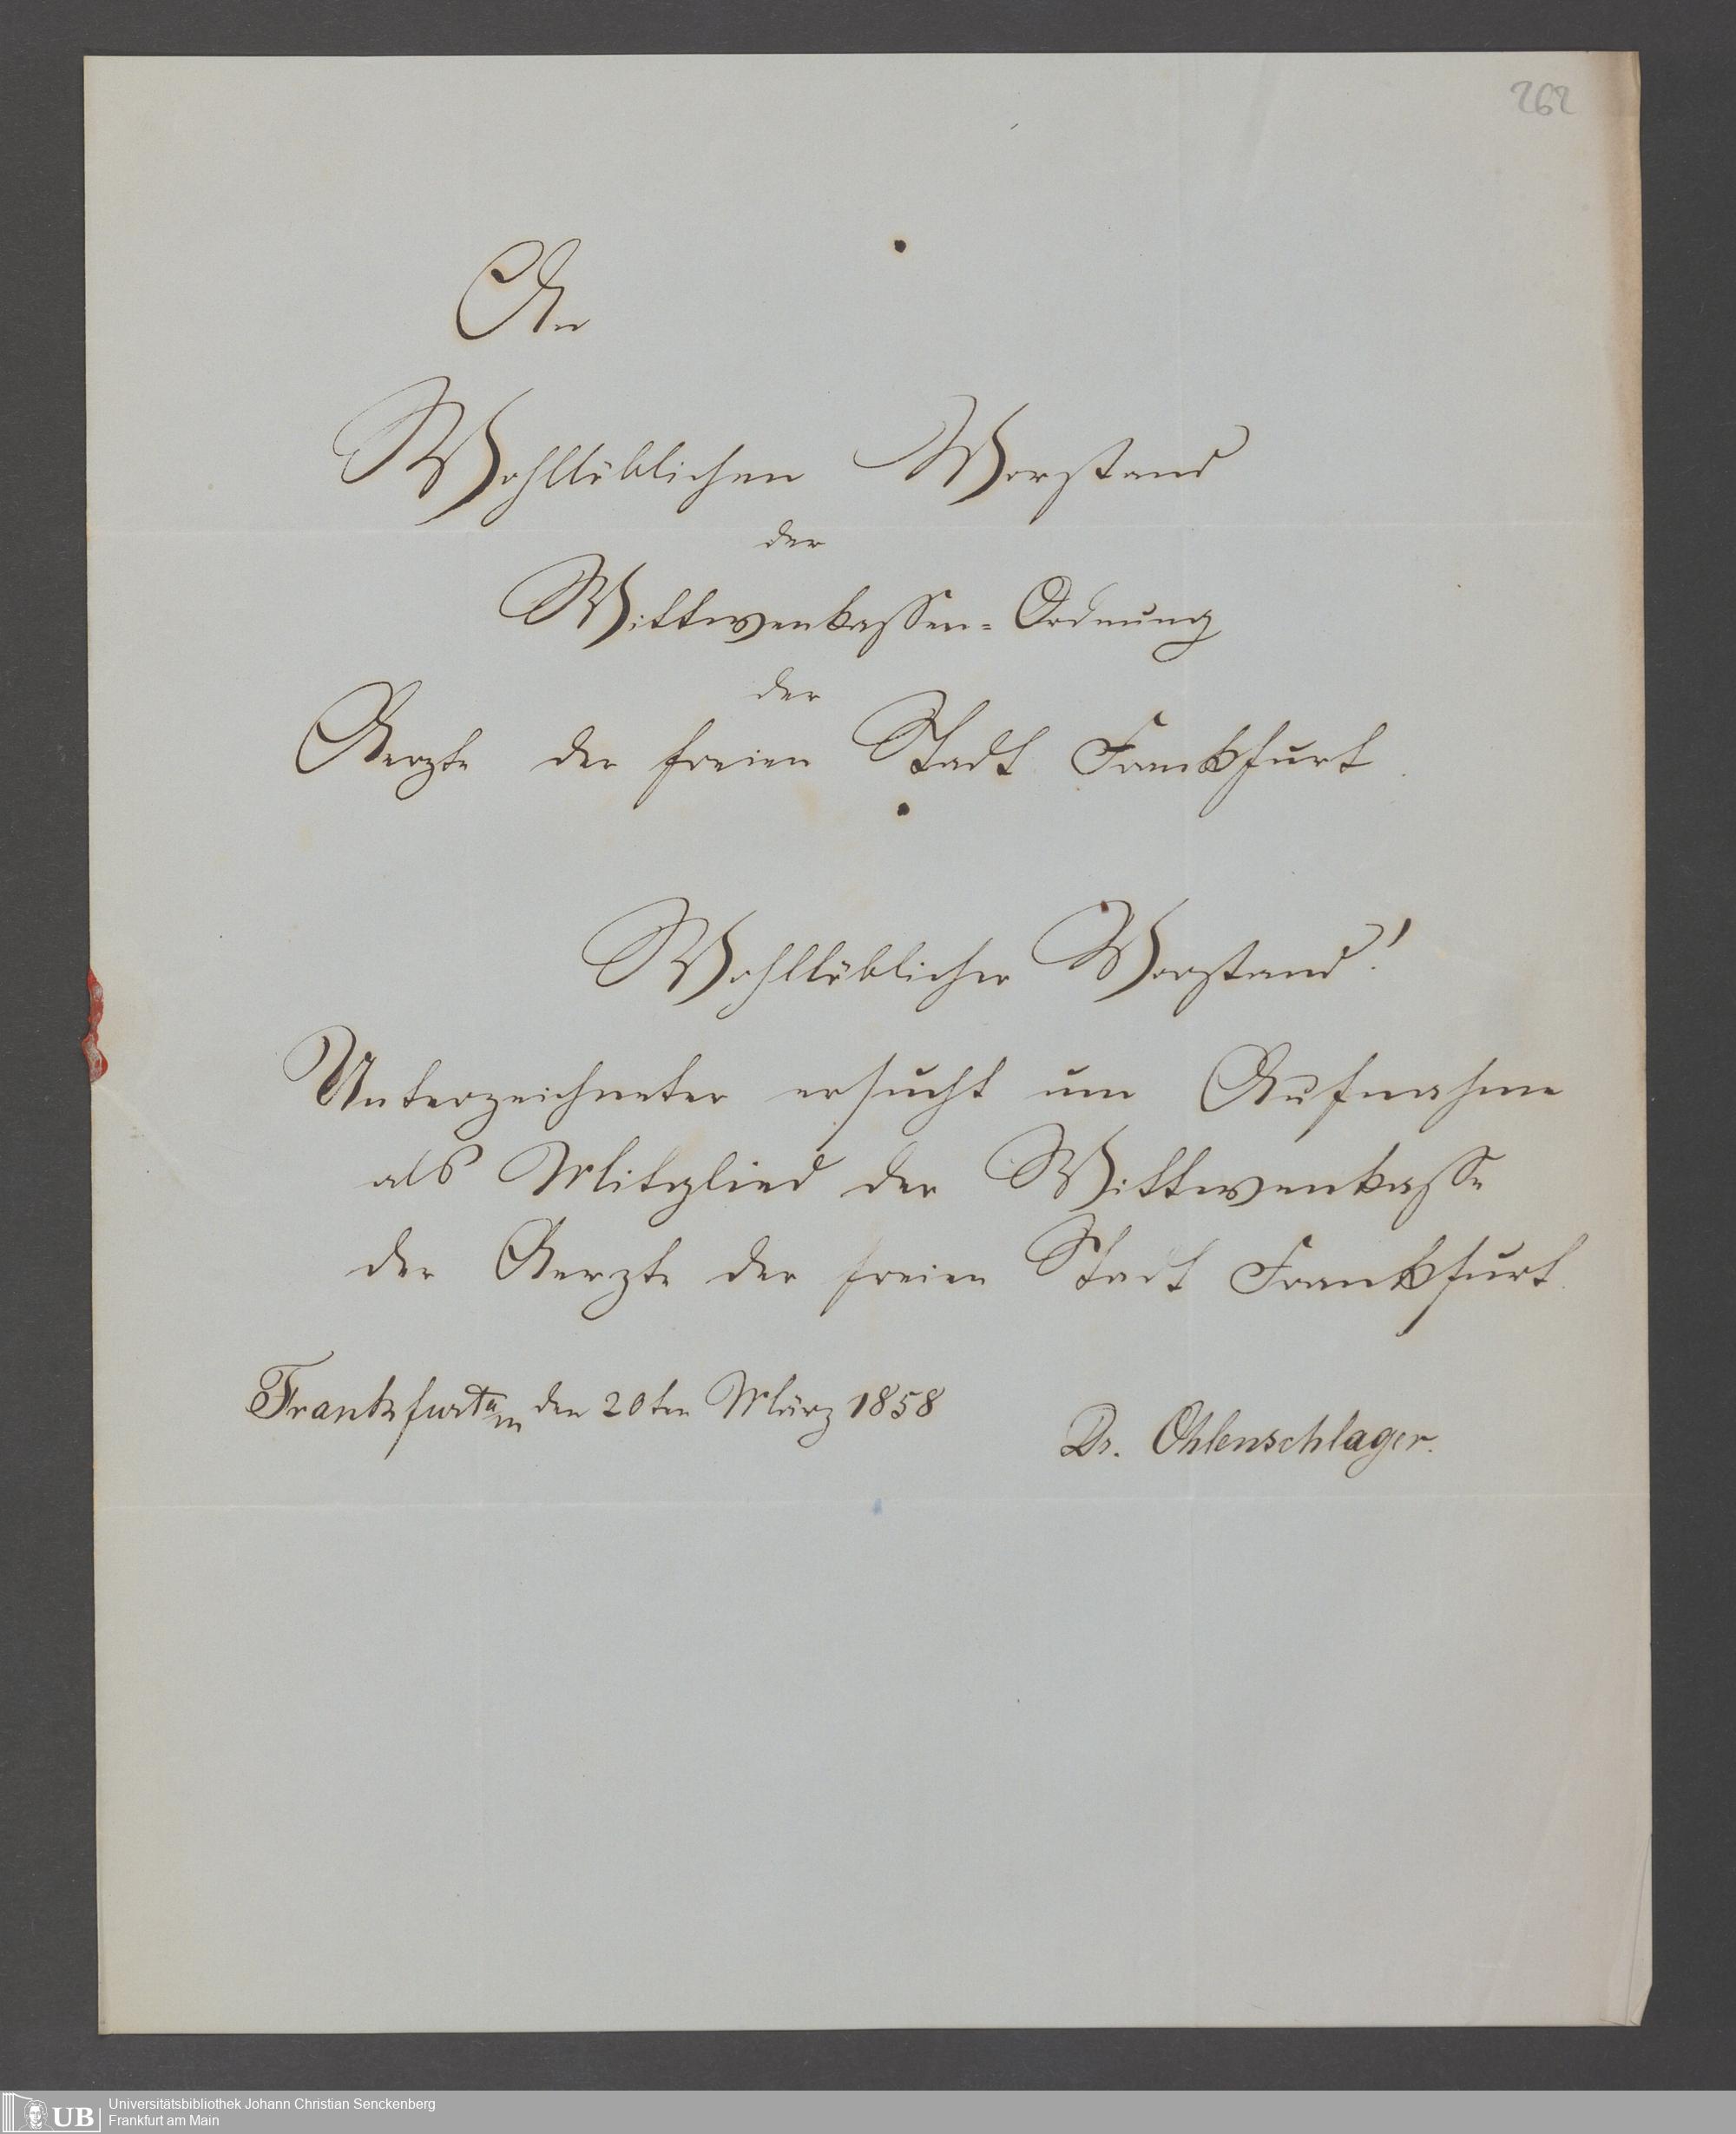 262
An
Wohllöblichen Vorstand
der
Wittwenkassen-Ordnung
der
Aerzte der freien Stadt Frankfurt.
Wohllöblicher Vorstand!
Unterzeichneter ersucht um Aufnahme
als Mitglied der Wittwenkasse
der Aerzte der freien Stadt Frankfurt.
Frankfurt a/m den 20ten März 1858
Dr. Ohlenschlager.
UB
Universitätsbibliothek Johann Christian Senckenberg
Frankfurt am Main